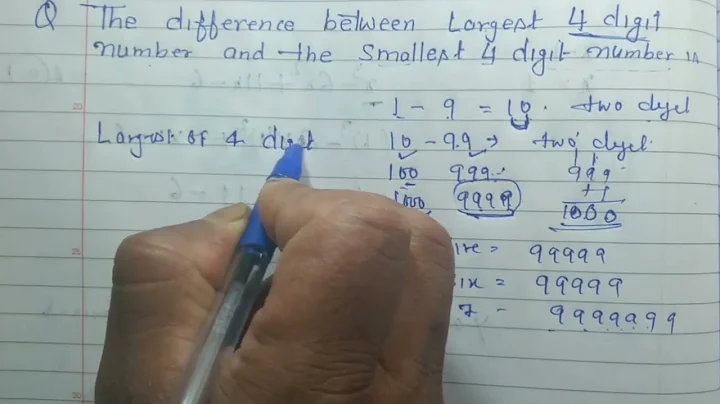 Q The difference between Largest 4 digit
number and the smallest 4 digit number is
1 - 9 = 10. two
Largest of 4 digit 10 - 99 → two
100 999 999
+1
1000 9999 1000
= 99999
ix = 99999
7 - 9999999